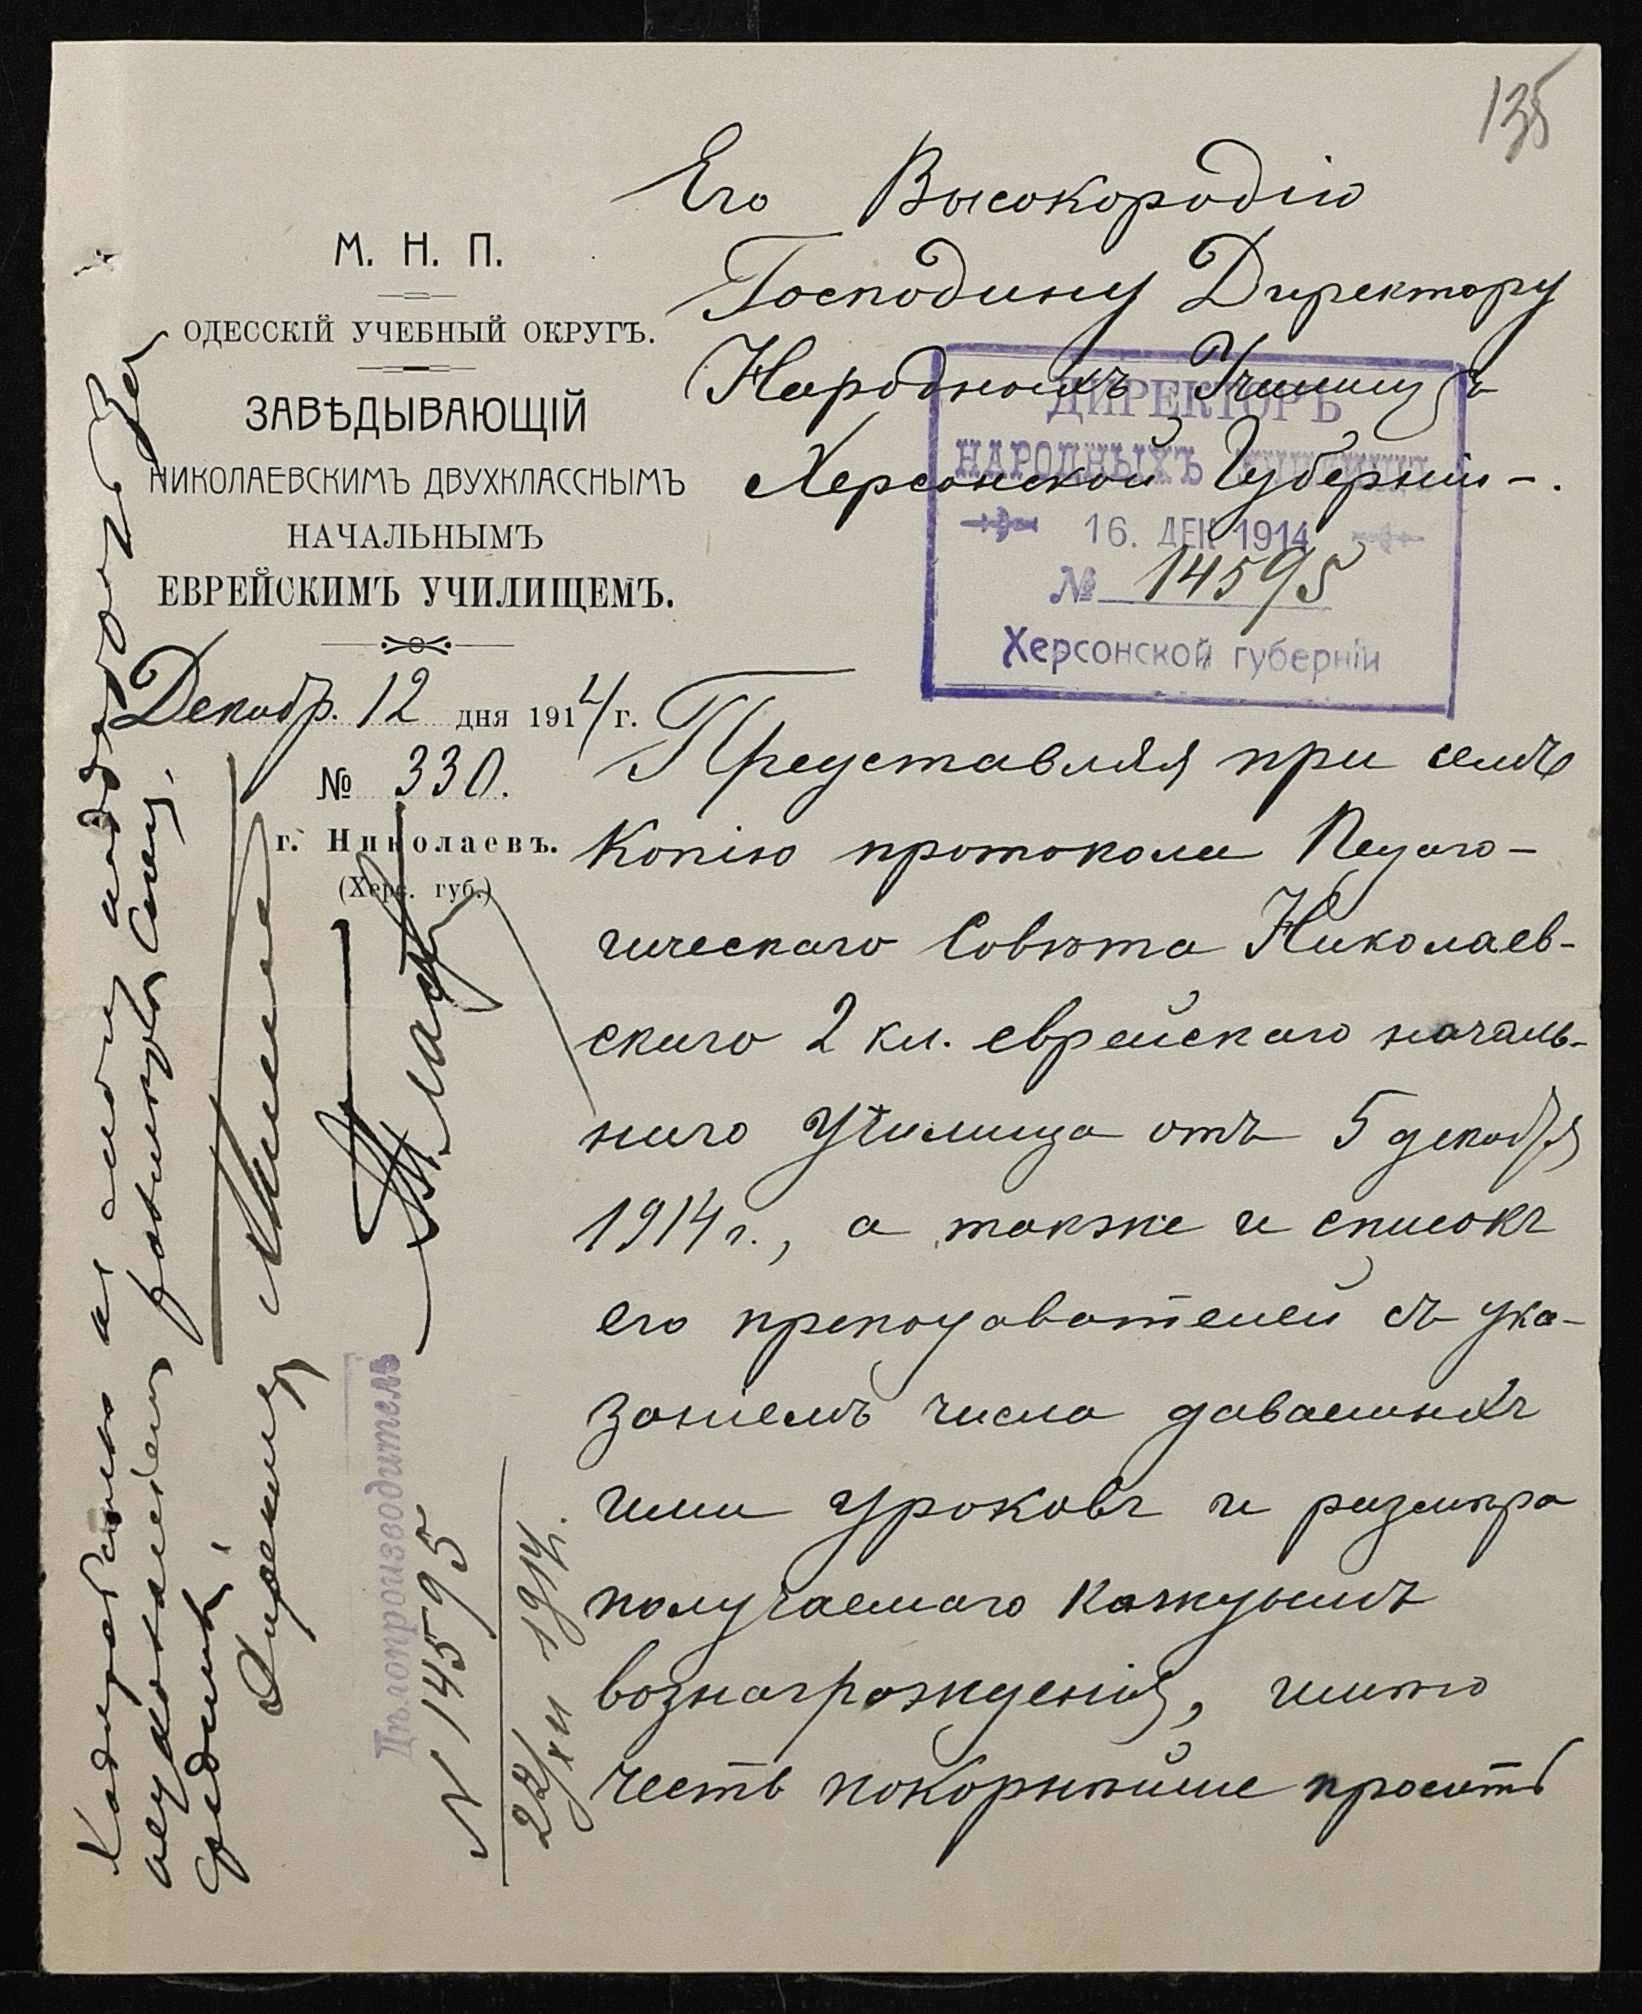 135
М. Н. П.
ОДЕССКІЙ УЧЕБНЫЙ ОКРУГЪ.
ЗАВѢДЫВАЮЩІЙ
НИКОЛАЕВСКИМЪ ДВУХКЛАССНЫМЪ
НАЧАЛЬНЫМЪ
ЕВРЕЙСКИМЪ УЧИЛИЩЕМЪ.
Декабр. 12 дня 1914 г.
№ 330.
г. Николаевъ.
(Херс. губ.)
Его Высокородію
Господину Директору
Народныхъ Училищъ
Херсонской Губерніи.
ДИРЕКТОРЪ
НАРОДНЫХЪ УЧИЛИЩЪ
16. ДЕК 1914
№ 14595
Херсонской губерніи
Представляя при семъ
копію протокола Педаго-
гическаго Совѣта Николаев-
скаго 2 кл. еврейскаго началь-
наго училища отъ 5 декабря
1914 г., а также и списокъ
его преподавателей съ ука-
заніемъ числа даваемыхъ
ими уроковъ и размѣра
получаемаго каждымъ
вознагражденія, имѣю
честь покорнѣйше просить
Дѣлопроизводитель
N 14595
22/XII 1914.